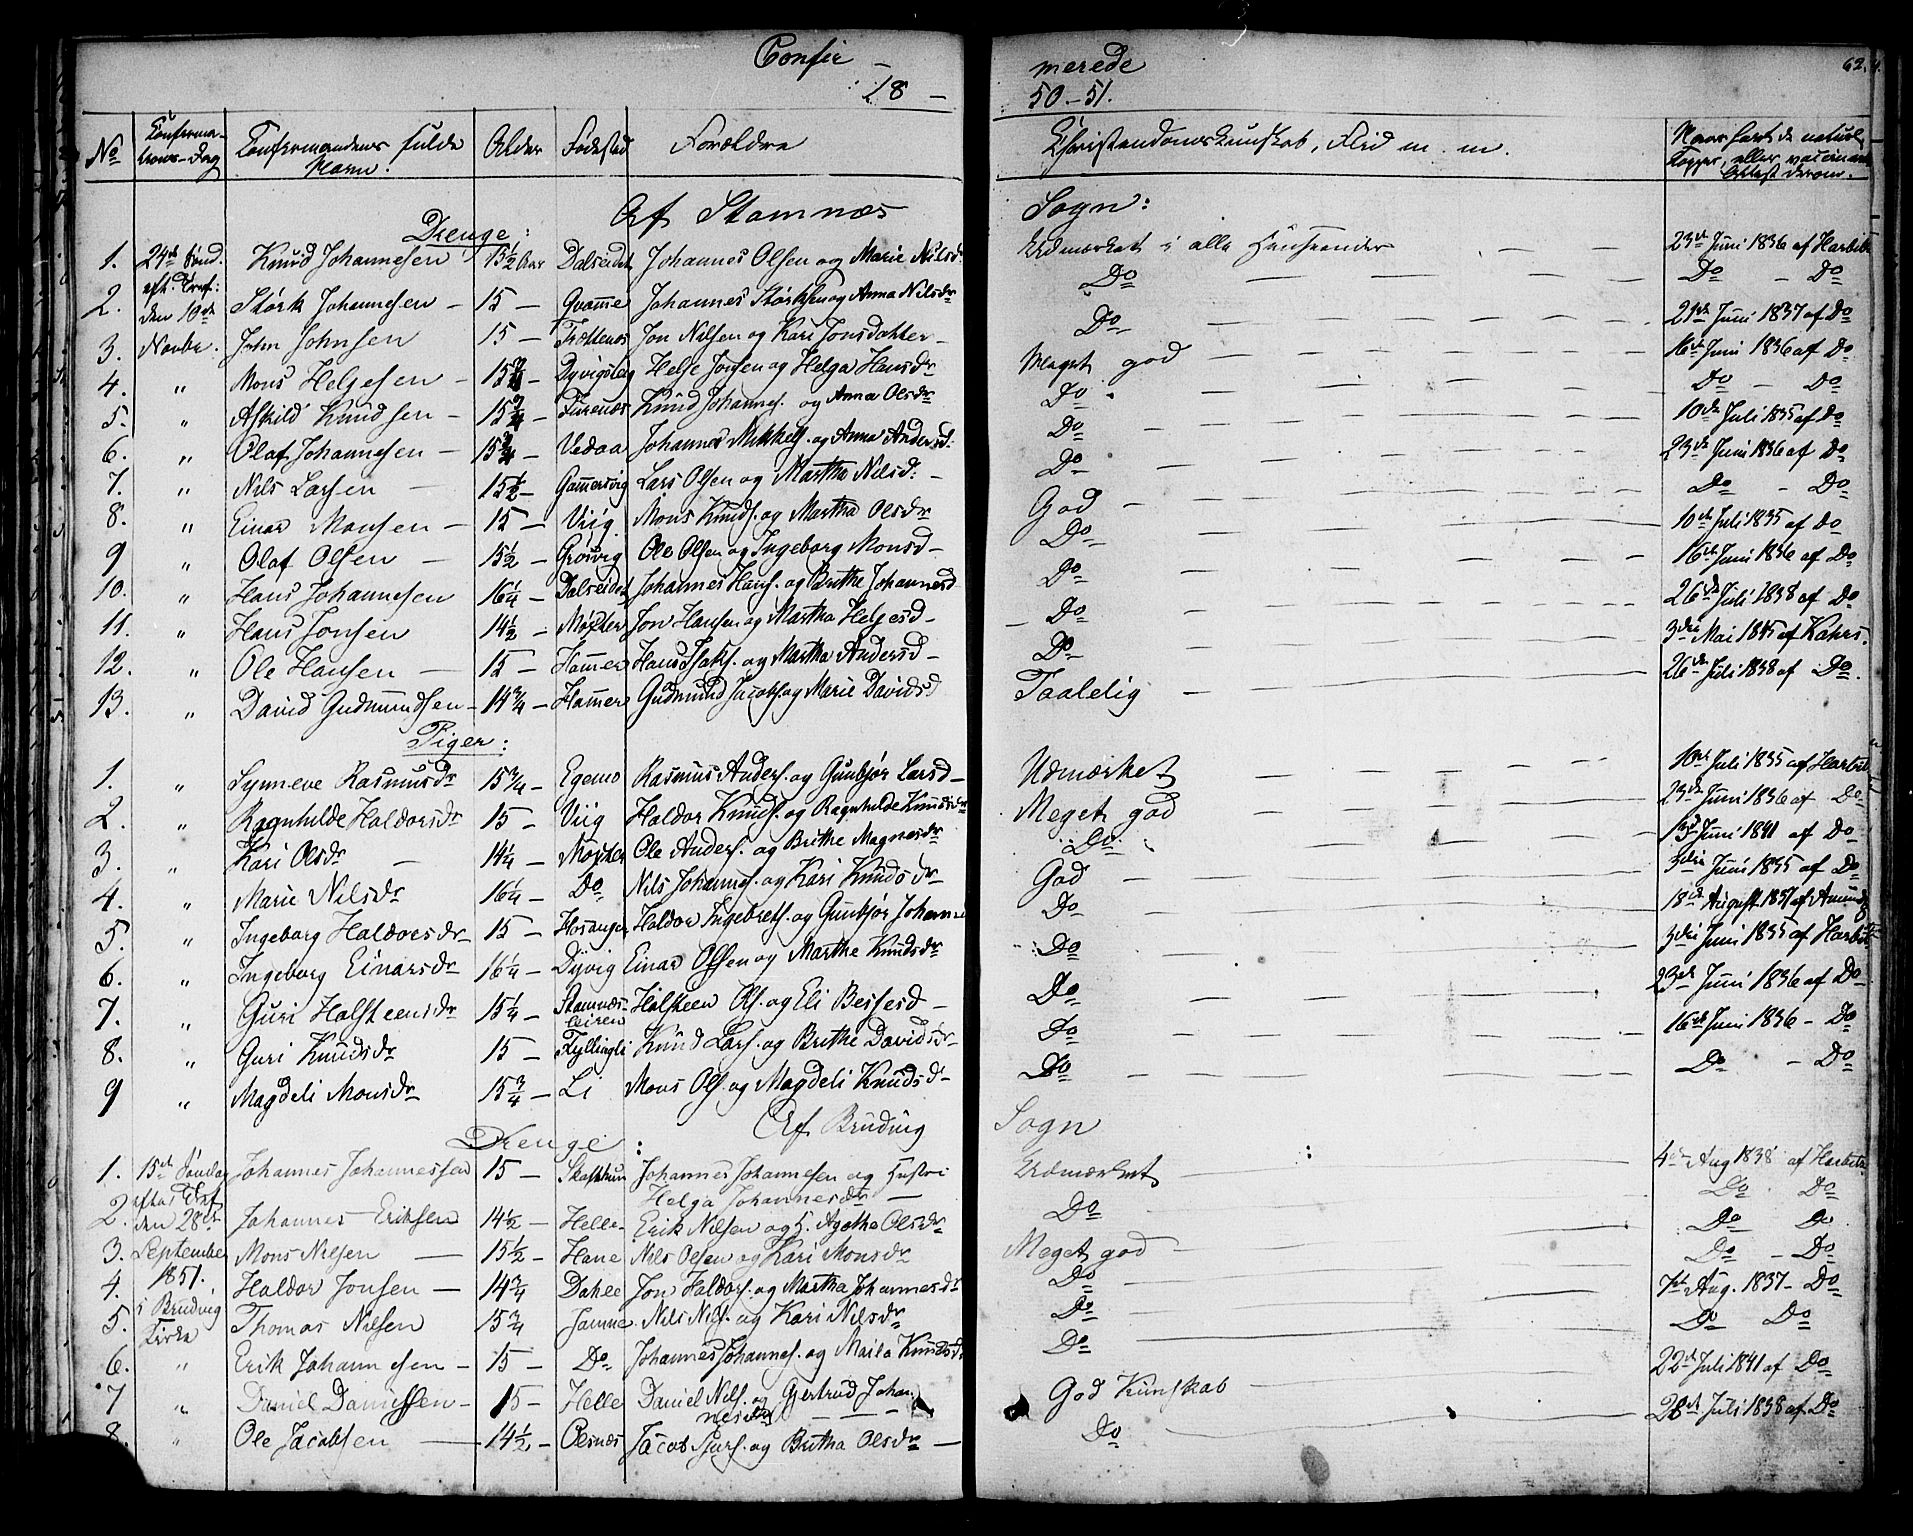 Confir – merede
62.
18 – 50 – 51.
No Confirma- tions-Dag Confirmandens fulde Navn. Alder Fødested Forældre Christendomskundskab, Flid m. m. Naar havt de naturl. Kopper, eller vaccineret Attest derom.
Af Stamnæs Sogn:
Drenge:
1. 24de Sønd. Knud Johannesen 15½ Aar Dalseidet Johannes Olsen og Marie Nilsd. Udmærket i alle Henseender 23de Juni 1836 af Harbitz
2. eft. Tref: den 10de Størk Johannesen – 15 – Qvamme Johannes Størksen og Anna Nilsdr Do Do – Do
3. Novbr. John Johnsen 15 – Trættenæs Jon Nilsen og Kari Jonsdatter – Do 21de Juni 1837 af Do
4. " Mons Helgesen – 15¾ – Helje Jonsen og Helga Hansdr Meget god 16de Juni 1836 af Do
5. " Askild Knudsen – 15¾ – Furenæs Knud Johannes. og Anna Olsdr Do Do – Do
6. " Olaf Johannesen – 15¾ – Vedaa Johannes Mikkels. og Anna Andersd. Do 10de Juli 1835 af Do
7. " Nils Larsen 15½ – Gammersvig Lars Olsen og Martha Nilsd. – Do 23de Juni 1836 af Do
8. " Einar Monsen – 15 – Viig Mons Knuds. og Martha Olsdr God Do – Do
9 " Olaf Olsen 15½ – Grøsvig Ole Olsen og Ingeborg Monsd – Do 10de Juli 1835 af Do
10. " Hans Johannesen 16¼ – Dalseidet Johannes Hans. og Brithe Johannesd Do 16de Juni 1836 af Do
11. " Hans Jonsen 14½ – Møxter Jon Hansen og Martha Helgesd – Do 26de Juli 1838 af Do
12. " Ole Hansen – 15 – Hammer Hans Isaks. og Martha Andersd – Do 3die Mai 1845 af Kahrs.
13. " David Gudmundsen – 14¾ – Hammer Gudmund Jacobs. og Marie Davidsd Taalelig 26de Juli 1838 af Do.
Piger:
1. " Synneve Rasmusdr 15¾ – Egemo Rasmus Anders. og Gunbjør Larsd – Udmærket 10de Juli 1835 af Harbitz
2. " Ragnhilde Haldorsdr 15 – Viig Haldor Knuds. og Ragnhilde Knudsdr Meget god 23de Juni 1836 af Do
3. " Kari Olsdr – 14¼ – Møxter Ole Anders. og Brithe Magnesdr Do Juni 1841 af Do
4. " Marie Nilsdr 16¼ – Do Nils Johannes. og Kari Knudsdr – God 3die Juni 1835 af Do
5. " Ingeborg Haldorsdr – 15 – Hosanger Haldor Ingebrets. og Gunbjør Johanne Do 18de August 1837 af
6. " Ingeborg Einarsdr 16¼ – Dyvig Einar Olsen og Marthe Knudsdr Do 3die Juni 1835 af Harbitz
7. " Guri Halsteensdr 15¼ – Stamnæs- leiren Halsteen Ols. og Eli Bessesd – Do 23de Juni 1836 af Do
8. " Guri Knudsdr 15 – Fyllingsli Knud Lars. og Brithe Davidsdr – Do 16de Juni 1836 – Do
9 " Magdeli Monsdr 15¾ – Li Mons Ols. og Magdeli Knudsd – Do Do – Do
Af Brudvig Sogn
Drenge:
1. 15de Søndag Johannes Johannessen 15 – Johannes Johannesen og Hustru Helga Johannesdr – Udmærket 4de Aug 1838 af Harbitz
2. efter Tref. den 28de Johannes Eriksen 14½ – Helle – Erik Nilsen og H. Agathe Olsdr Do Do Do
3. September Mons Nilsen – 15½ – Hane Nils Olsen og Kari Monsdr Meget god Do Do
4. 1851. Haldor Jonsen – 14¾ – Dahle Jon Haldors. og Martha Johannesdr Do Do – Do
5. i Brudvig Kirke Thomas Nilsen 15¾ Jamne. Nils Nils. og Kari Nilsdr Do 7de Aug. 1837 – Do
6. " Erik Johannesen – 15 – Do. Johannes Johannes. og Knudsdr Do Do Do
7 " Daniel Danielsen – 15 – Helle Daniel Nils. og Gjertrud Johan- nesdr God Kunskab 22de Juli 1841 af Do
8. " Ole Jacobsen 14½ – Olsnæs Jacob Sjurs. og Britha Olsdr – Do 28de Juli 1838 af Do